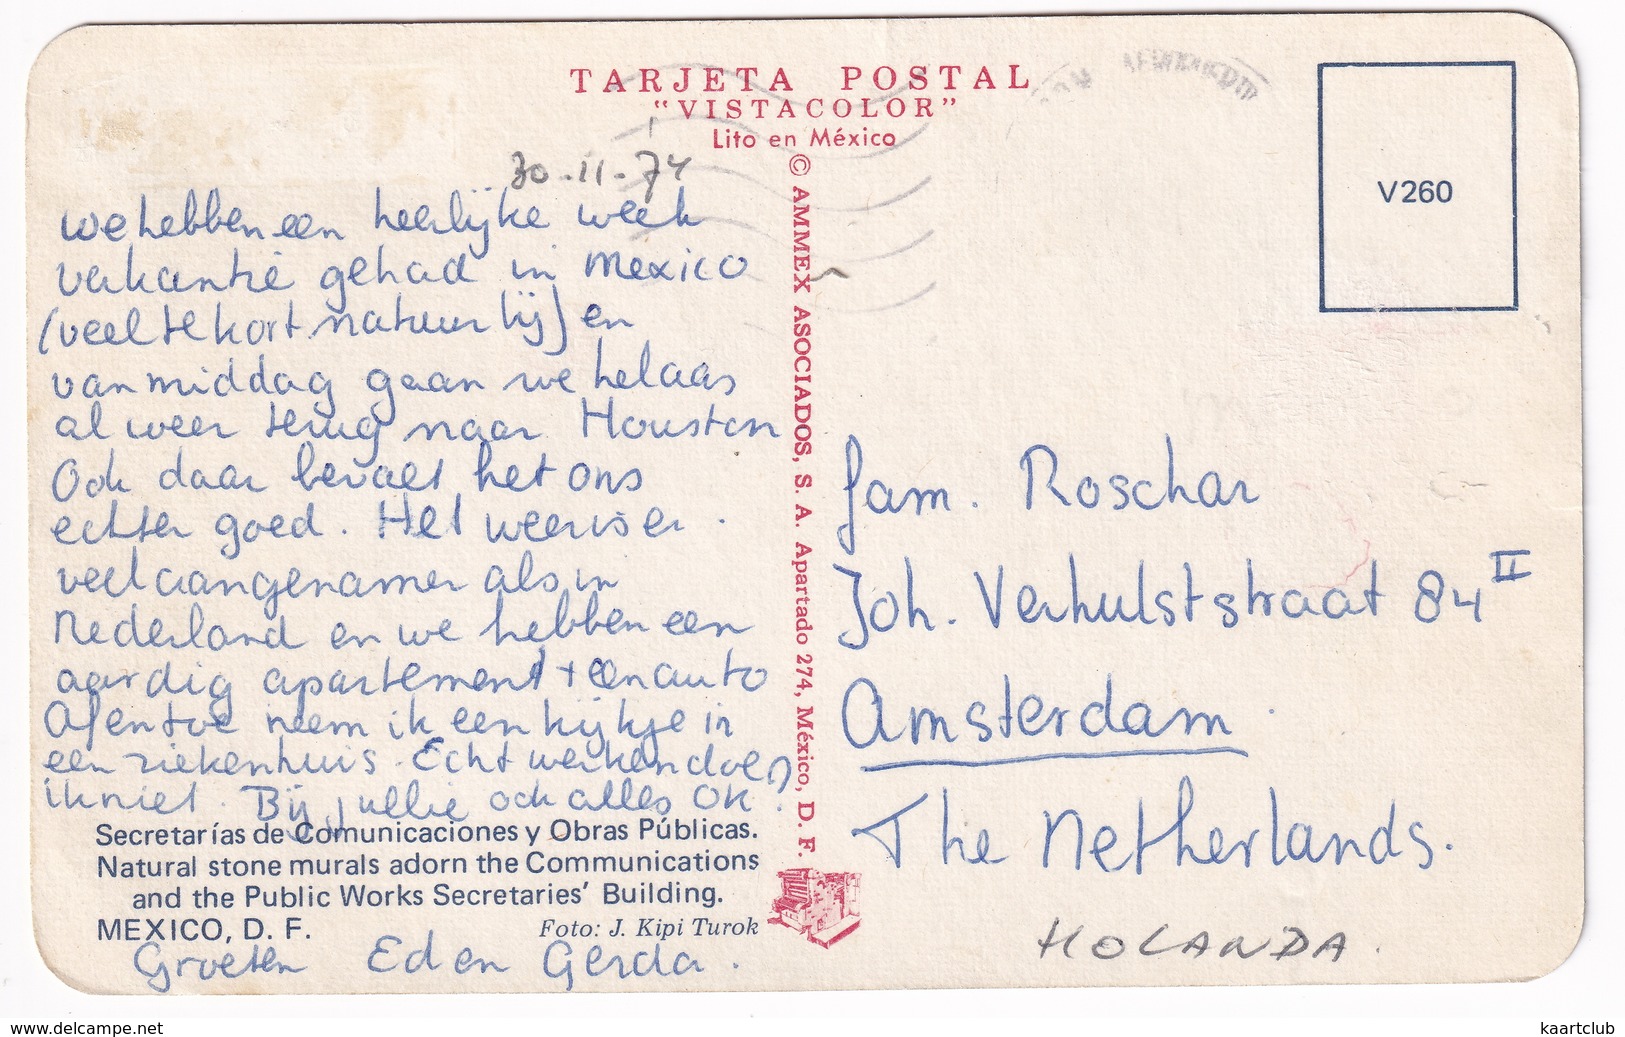 TARJETA POSTAL
"VISTACOLOR"
Lito en México
30-11-74
we hebben een heerlijke week
vakantie gehad in Mexico
(veel te kort natuurlijk) en
vanmiddag gaan we helaas
al weer terug naar Houston
Ook daar bevalt het ons
echter goed. Het weer is er
veel aangenamer als in
Nederland en we hebben een
aardig apartement + een auto
Af en toe neem ik een kijkje in
een ziekenhuis. Echt werken doe
ik niet. Bij jullie ook alles OK?
Secretarías de Comunicaciones y Obras Públicas.
Natural stone murals adorn the Communications
and the Public Works Secretaries' Building.
MEXICO, D. F. Foto: J. Kipi Turok
Groeten Ed en Gerda.
© AMMEX ASOCIADOS, S. A. Apartado 274, México, D. F.
V260
fam. Roschar
Joh. Verhulststraat 84 II
Amsterdam
The Netherlands.
HOLANDA.
www.delcampe.net
kaartclub